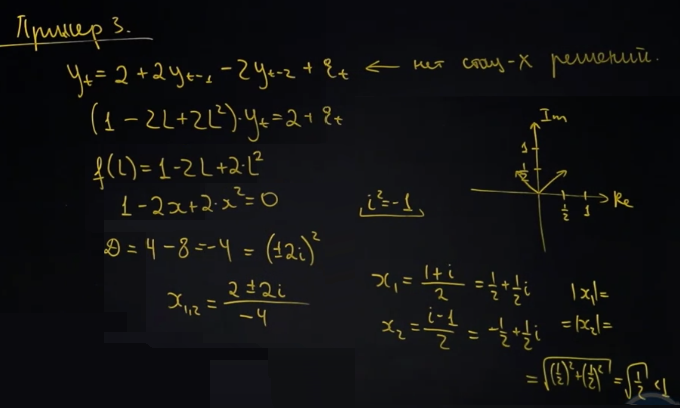 Пример 3.
y_t = 2 + 2y_{t-1} - 2y_{t-2} + ε_t ← нет стац-х решений.
(1 - 2L + 2L²)·y_t = 2 + ε_t
f(L) = 1 - 2L + 2·L²
1 - 2x + 2·x² = 0
i² = -1
D = 4 - 8 = -4 = (±2i)²
x_{1,2} = (2 ± 2i)/(-4)
Im
1
1/2
1/2 1 Re
x₁ = (1+i)/2 = 1/2 + 1/2 i
|x₁| =
x₂ = (i-1)/2 = -1/2 + 1/2 i
= |x₂| =
= √((1/2)² + (1/2)²) = √(1/2) < 1